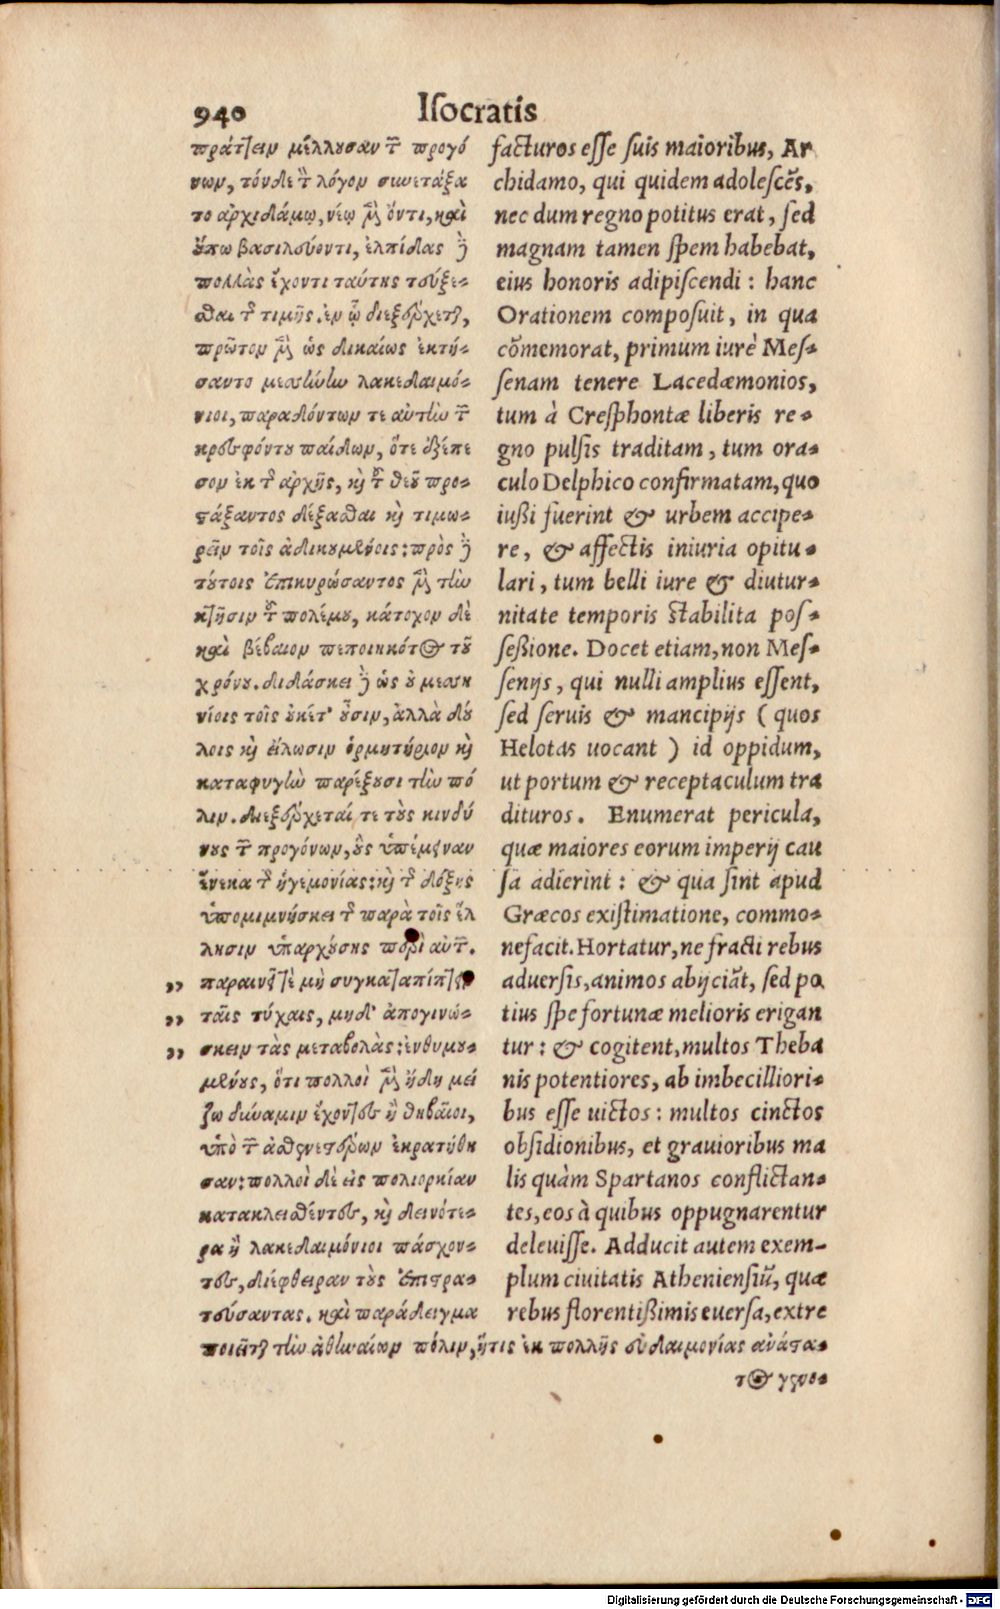 940 Isocratis
πράττειν μέλλουσαν τῶν προγό
νων, τόνδε τὸν λόγον συνετάξα
το ἀρχιδάμῳ, νέῳ μὲν ὄντι, καὶ
οὔπω βασιλεύοντι, ἐλπίδας δὲ
πολλὰς ἔχοντι ταύτης τεύξε-
σθαι τῆς τιμῆς. ἐν ᾧ διεξέρχεται,
πρῶτον μὲν ὡς δικαίως ἐκτή-
σαντο μεσήνην λακεδαιμό-
νιοι, παραδόντων τε αὐτὴν τῶν
κρεσφόντου παίδων, ὅτε ἐξέπε
σον ἐκ τῆς ἀρχῆς, καὶ τοῦ θεοῦ προ-
στάξαντος δέξασθαι καὶ τιμω-
ρεῖν τοῖς ἀδικουμένοις: πρὸς δὲ
τούτοις ἐπικυρώσαντος μὲν τὴν
κτῆσιν τοῦ πολέμου, κάτοχον δὲ
καὶ βέβαιον πεποιηκότος τοῦ
χρόνου. διδάσκει δὲ ὡς οὐ μεσση
νίοις τοῖς οὐκέτ' οὖσιν, ἀλλὰ δού
λοις καὶ εἵλωσιν ὁρμητήριον καὶ
καταφυγὴν παρέξουσι τὴν πό
λιν. διεξέρχεταί τε τοὺς κινδύ
νους τῶν προγόνων, οὓς ὑπέμειναν
ἕνεκα τῆς ἡγεμονίας: καὶ τῆς δόξης
ὑπομιμνήσκει τῆς παρὰ τοῖς ἕλ
λησιν ὑπαρχούσης περὶ αὐτῶν.
,, παραινεῖ τε μὴ συγκαταπίπτειν
,, ταῖς τύχαις, μηδ' ἀπογινώ-
,, σκειν τὰς μεταβολὰς: ἐνθυμου-
μένους, ὅτι πολλοὶ μὲν ἤδη μεί
ζω δύναμιν ἔχοντες ἢ θηβαῖοι,
ὑπὸ τῶν ἀσθενεστέρων ἐκρατήθη
σαν: πολλοὶ δὲ εἰς πολιορκίαν
κατακλεισθέντες, καὶ δεινότε-
ρα ἢ λακεδαιμόνιοι πάσχον-
τες, διέφθειραν τοὺς ἐπιστρα-
τεύσαντας. καὶ παράδειγμα
ποιεῖται τὴν ἀθηναίων πόλιν, ἥτις ἐκ πολλῆς εὐδαιμονίας ἀνάστα-
τος γενο-
facturos esse suis maioribus, Ar
chidamo, qui quidem adolescēs,
nec dum regno potitus erat, sed
magnam tamen spem habebat,
eius honoris adipiscendi: hanc
Orationem composuit, in qua
cōmemorat, primum iurè Mes-
senam tenere Lacedæmonios,
tum à Cresphontæ liberis re-
gno pulsis traditam, tum ora-
culo Delphico confirmatam, quo
iußi fuerint & urbem accipe-
re, & affectis iniuria opitu-
lari, tum belli iure & diutur-
nitate temporis stabilita pos-
seßione. Docet etiam, non Mes-
senijs, qui nulli amplius essent,
sed seruis & mancipijs (quos
Helotas uocant) id oppidum,
ut portum & receptaculum tra
dituros. Enumerat pericula,
quæ maiores eorum imperij cau
sa adierint: & qua sint apud
Græcos existimatione, commo-
nefacit. Hortatur, ne fracti rebus
aduersis, animos abijciāt, sed po
tius spe fortunæ melioris erigan
tur: & cogitent, multos Theba
nis potentiores, ab imbecilliori-
bus esse uictos: multos cinctos
obsidionibus, et grauioribus ma
lis quàm Spartanos conflictan-
tes, eos à quibus oppugnarentur
deleuisse. Adducit autem exem-
plum ciuitatis Atheniensiū, quæ
rebus florentißimis euersa, extre
Digitalisierung gefördert durch die Deutsche Forschungsgemeinschaft - DFG